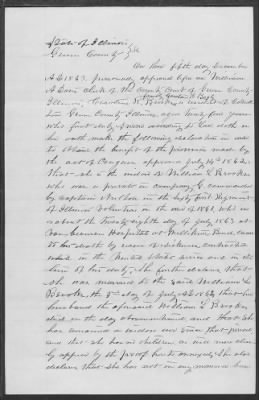 State of Illinois
Green County } ss
On this fifth day December
A.D. 1863, personally appeared before me William
A Davis clerk of the county court of Green County
Illinois, R. Brooks a resident of
Green County Illinois, aged twenty four years
who first duly sworn according to law doth on
her oath make the following declaration in order
to obtain the benefit of the provision made by
the act of Congress approved July 14th 1862.
That she is the widow of William L Brooks
who was a private in company G commanded
by Captain in the Sixty first Regiment
of Illinois Volunteers in the war of 1861 who on
or about the twenty eighth day of July 1863 at
Hospital at Millikens Bend, came
to his death by reason of sickness contracted
while in the United States service and in the
line of his duty; She further declares that
she was married to the said William L.
Brooks, the 5th day of July, that her
husband the aforesaid William L Brooks
died on the day abovementioned, and that she
has remained a widow ever since that period
and that she has no children as will more clearly
by appear by the proof hereto annexed; She also
declares that she has not in any manner been